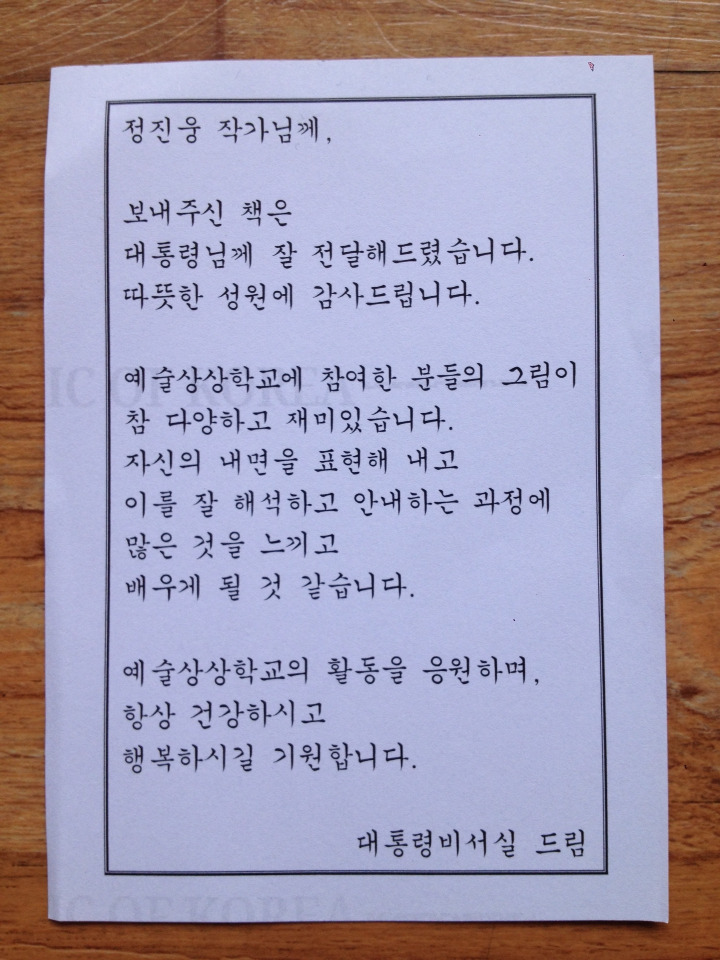 정진웅 작가님께,
보내주신 책은
대통령님께 잘 전달해드렸습니다.
따뜻한 성원에 감사드립니다.
예술상상학교에 참여한 분들의 그림이
참 다양하고 재미있습니다.
자신의 내면을 표현해 내고
이를 잘 해석하고 안내하는 과정에
많은 것을 느끼고
배우게 될 것 같습니다.
예술상상학교의 활동을 응원하며,
항상 건강하시고
행복하시길 기원합니다.
대통령비서실 드림
IC OF KOREA
IC OF KOREA